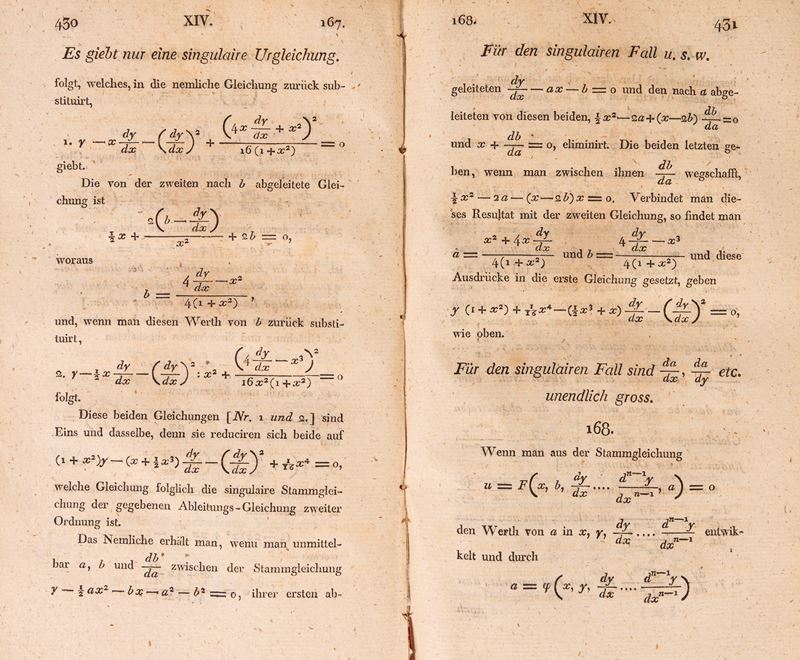 430 XIV. 167.
Es giebt nur eine singulaire Urgleichung.
folgt, welches, in die nemliche Gleichung zurück sub-
stituirt,
1. y — x dy/dx — (dy/dx)² + (4x dy/dx + x²)² / 16(1+x²) = 0
giebt.
Die von der zweiten nach b abgeleitete Glei-
chung ist
½ x + 2(b — dy/dx) / x² + 2b = 0,
woraus
b = (4 dy/dx — x²) / 4(1+x²),
und, wenn man diesen Werth von b zurück substi-
tuirt,
2. y — ½ x dy/dx — (dy/dx)² : x² + (4 dy/dx — x³)² / 16x²(1+x²) = 0
folgt.
Diese beiden Gleichungen [Nr. 1 und 2.] sind
Eins und dasselbe, denn sie reduciren sich beide auf
(1 + x²)y — (x + ½x³) dy/dx — (dy/dx)² + 1/16 x⁴ = 0,
welche Gleichung folglich die singulaire Stammglei-
chung der gegebenen Ableitungs-Gleichung zweiter
Ordnung ist.
Das Nemliche erhält man, wenn man unmittel-
bar a, b und db/da zwischen der Stammgleichung
y — ½ ax² — bx — a² — b² = 0, ihrer ersten ab-
168. XIV. 431
Für den singulairen Fall u. s. w.
geleiteten dy/dx — ax — b = 0 und den nach a abge-
leiteten von diesen beiden, ½ x² — 2a + (x — 2b) db/da = 0
und x + db/da = 0, eliminirt. Die beiden letzten ge-
ben, wenn man zwischen ihnen db/da wegschafft,
½ x² — 2a — (x — 2b) x = 0. Verbindet man die-
ses Resultat mit der zweiten Gleichung, so findet man
a = (x² + 4x dy/dx) / 4(1+x²) und b = (4 dy/dx — x³) / 4(1+x²) und diese
Ausdrücke in die erste Gleichung gesetzt, geben
y (1 + x²) + 1/16 x⁴ — (½x³ + x) dy/dx — (dy/dx)² = 0,
wie oben.
Für den singulairen Fall sind da/dx, da/dy etc.
unendlich gross.
168.
Wenn man aus der Stammgleichung
u = F(x, b, dy/dx .... dⁿ⁻¹y/dxⁿ⁻¹, a) = 0
den Werth von a in x, y, dy/dx .... dⁿ⁻¹y/dxⁿ⁻¹ entwik-
kelt und durch
a = φ(x, y, dy/dx .... dⁿ⁻¹y/dxⁿ⁻¹)